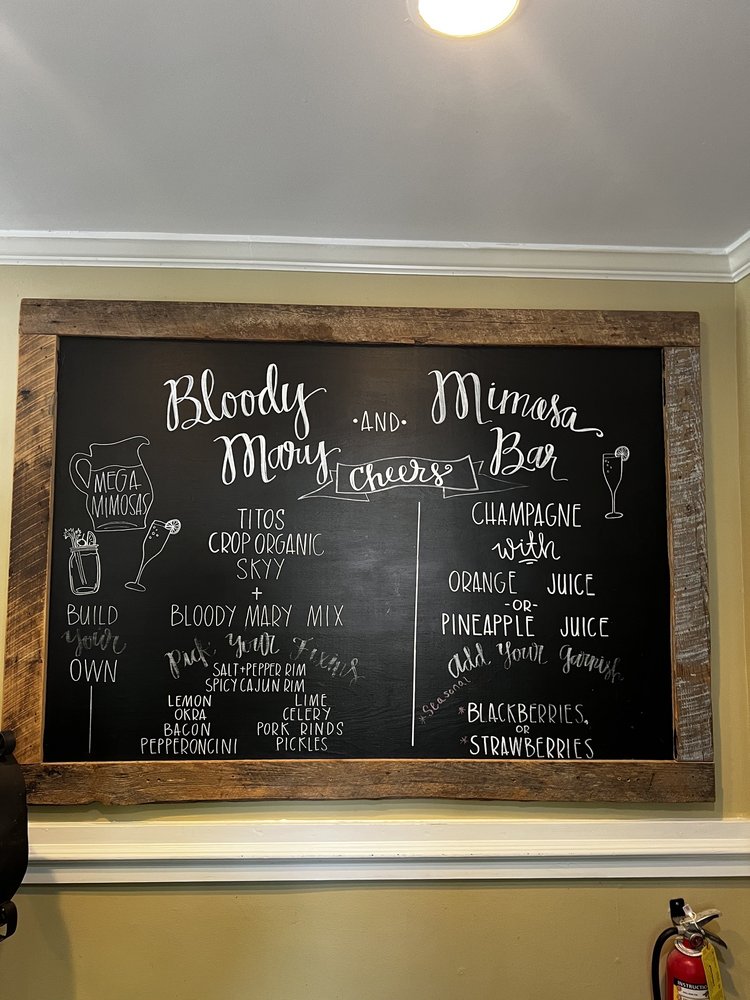 Bloody
Mary
·AND·
Mimosa
Bar
Cheers
MEGA
MIMOSAS
BUILD
Your
OWN
TITOS
CROP ORGANIC
SKYY
+
BLOODY MARY MIX
Pick Your Fixins
SALT+PEPPER RIM
SPICY CAJUN RIM
LEMON LIME
OKRA CELERY
BACON PORK RINDS
PEPPERONCINI PICKLES
CHAMPAGNE
with
ORANGE JUICE
-OR-
PINEAPPLE JUICE
Add Your Garnish
*Seasonal
*BLACKBERRIES,
OR
*STRAWBERRIES
INSTRUCTIONS